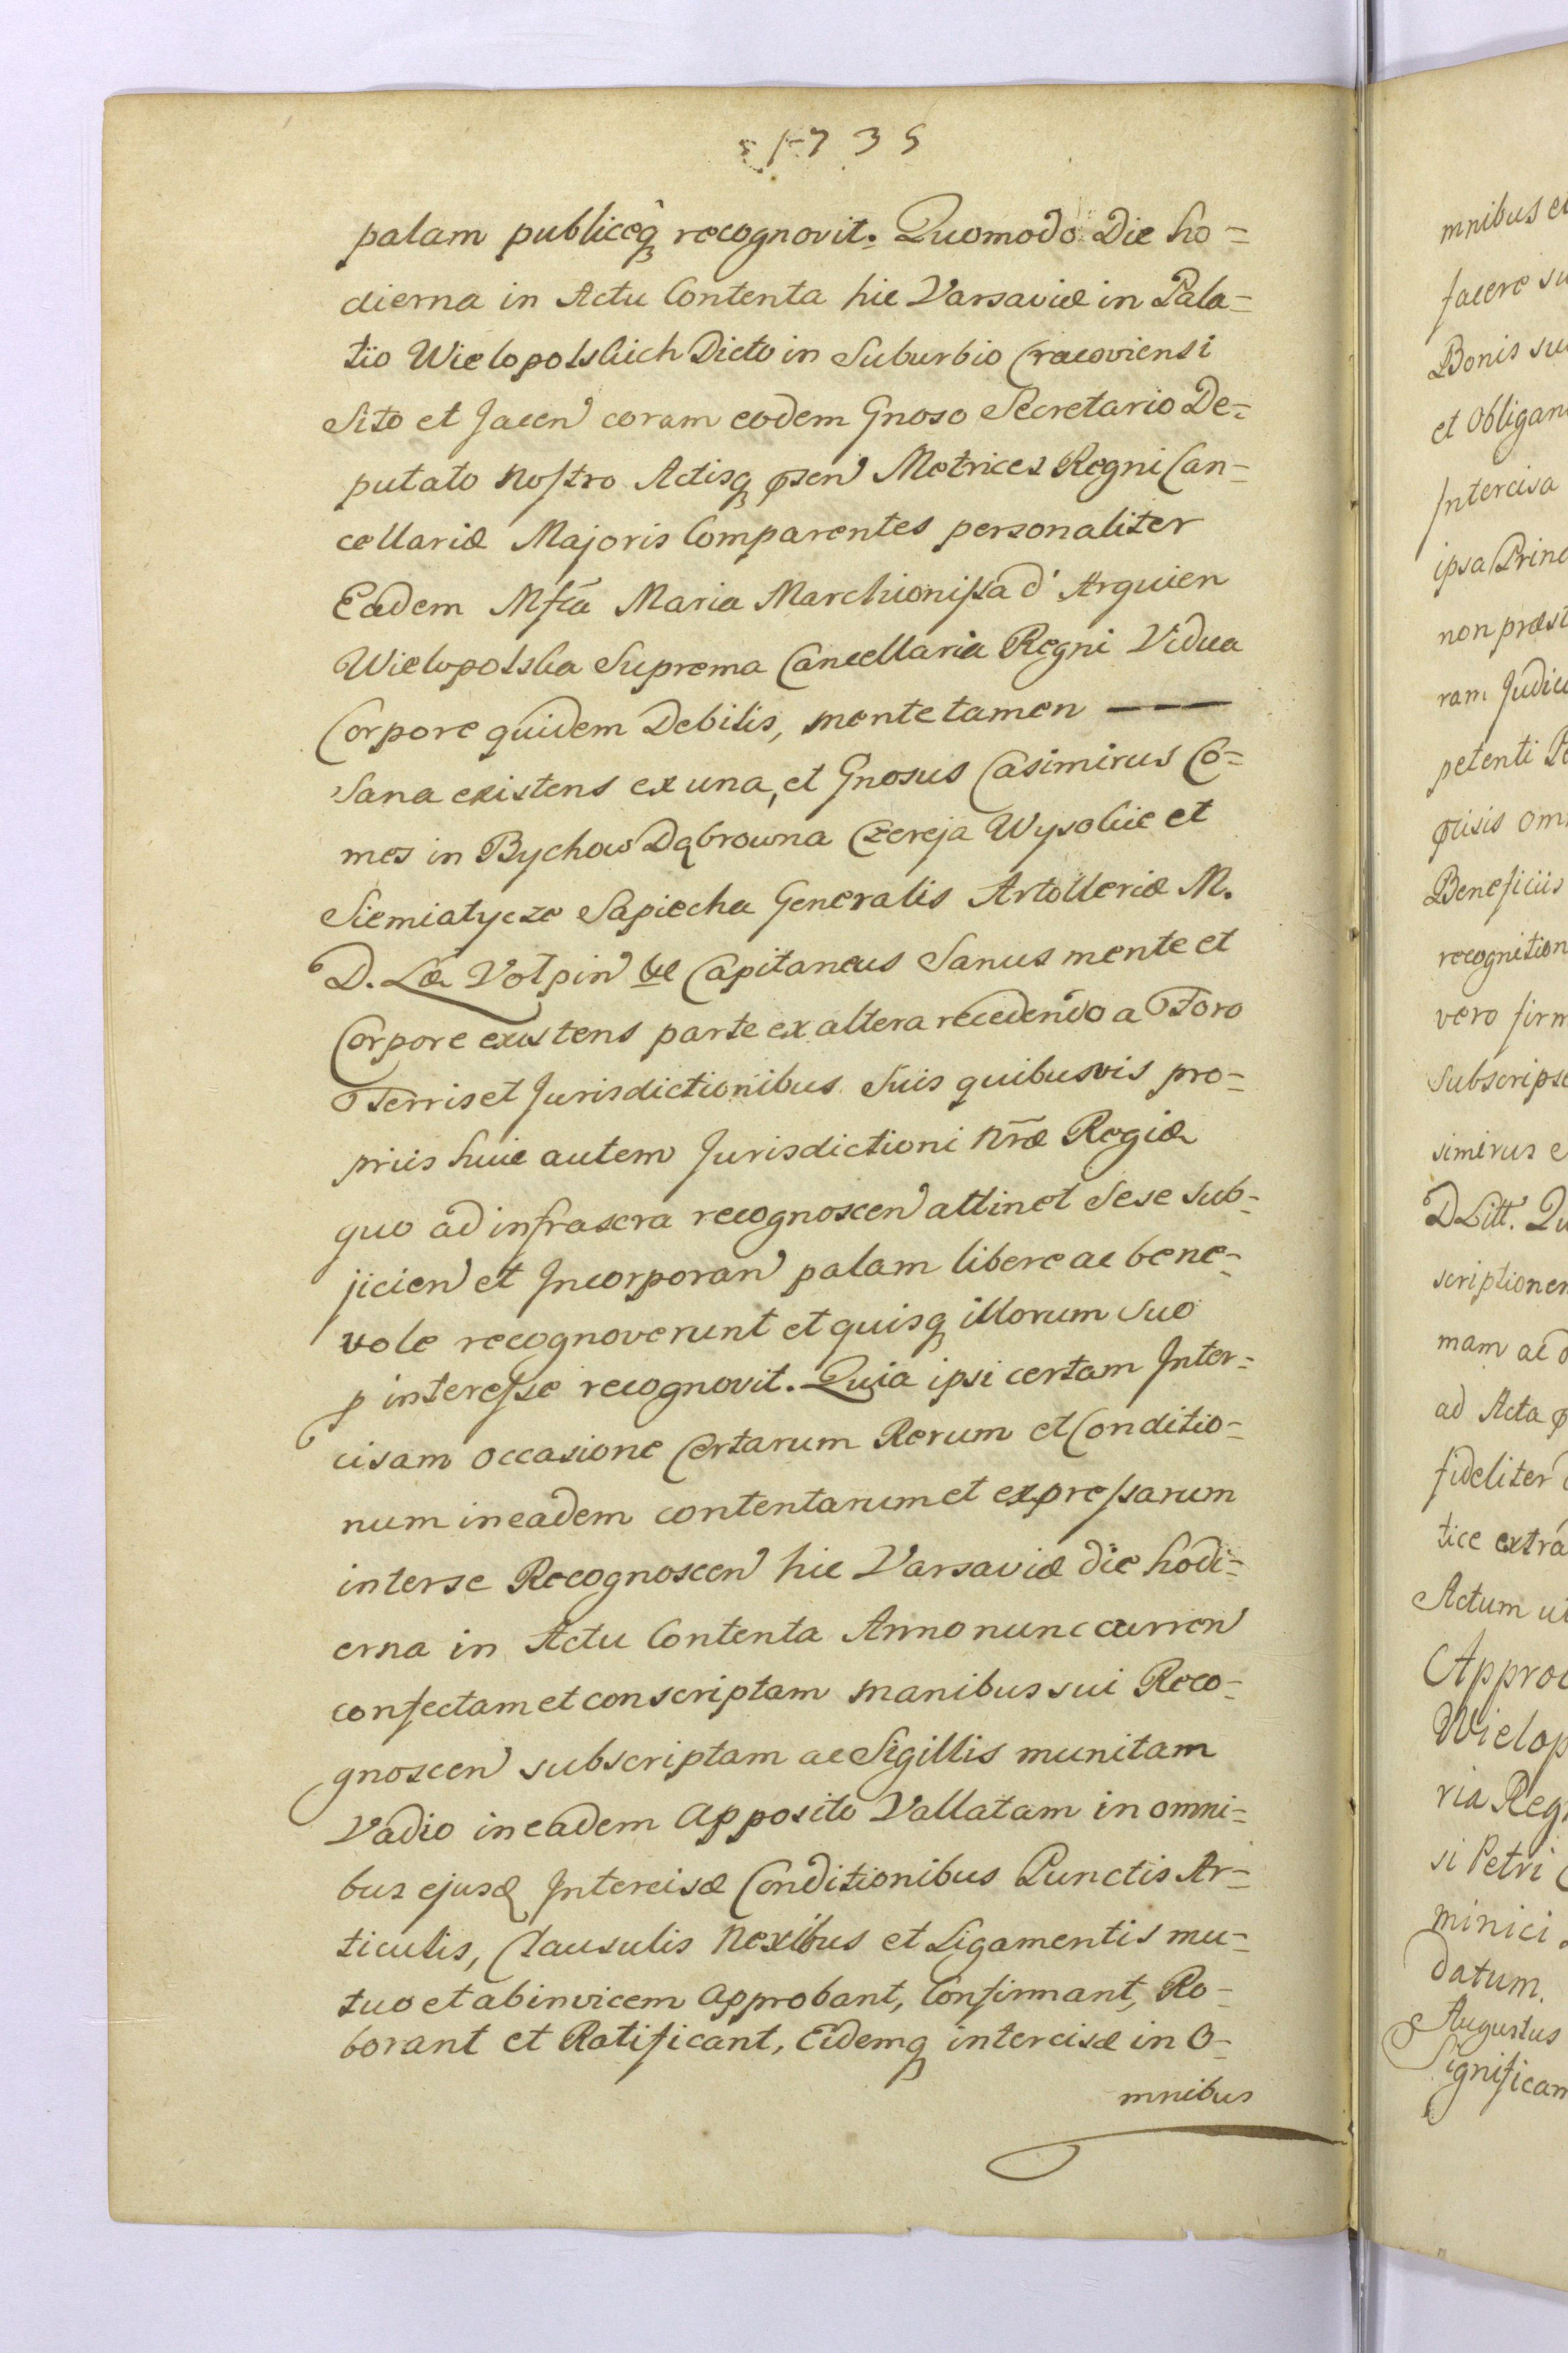 1735
palam publiceq₃ recognovit. Quomodo Die ho=
dierna in Actu Contenta hic Varsaviæ in Pala=
tio Wielopolskich Dicto in Suburbio Cracoviensi
Sito et Jacen coram eodem Gnoso Secretario De=
putato nostro Actisq₃ psen Metrices Regni Can=
cellariæ Majoris Comparentes personaliter
Eadem Mfca Maria Marchionissa d'Arquien
Wielopolska Suprema Cancellaria Regni Vidua
Corpore quidem Debilis, mente tamen ———
Sana existens ex una, et Gnosus Casimirus Co=
mes in Bychow Dąbrowna Czereja Wysokie et
Siemiatycze Sapiecha Generalis Artolleriæ M.
D. L. Volpin Capitaneus Sanus mente et
Corpore existens parte ex altera recedendo a Foro
Terris et Jurisdictionibus Suis quibusvis pro=
priis huic autem Jurisdictioni nræ Regiæ
quo ad infrascra recognoscen attinet Sese sub=
jicien et Incorporan palam libere ac bene=
vole recognoverunt et quisq₃ illorum suo
p interesse recognovit. Quia ipsi certam Inter=
cisam occasione Certarum Rerum et Conditio=
num in eadem contentarum et expressarum
inter se Recognoscen hic Varsaviæ die hodi=
erna in Actu Contenta Anno nunc curren
confectam et conscriptam manibus sui Reco=
gnoscen subscriptam ac Sigillis munitam
Vadio in eadem apposito Vallatam in omni=
bus ejusd Intercisæ Conditionibus Punctis Ar=
ticulis, Clausulis Nexibus et Ligamentis mu=
tuo et ab invicem approbant, Confirmant, Ro=
borant et Ratificant, Eidemq₃ intercisæ in O=
mnibus
mnibus
facere
Bonis
et
Intercisa
ipsa
non
ram
petenti
Beneficiis
vero
simirus
D Litt.
mam ac
ad Acta
fideliter
tice
Actum
si Petri
minici
datum.
Augustus